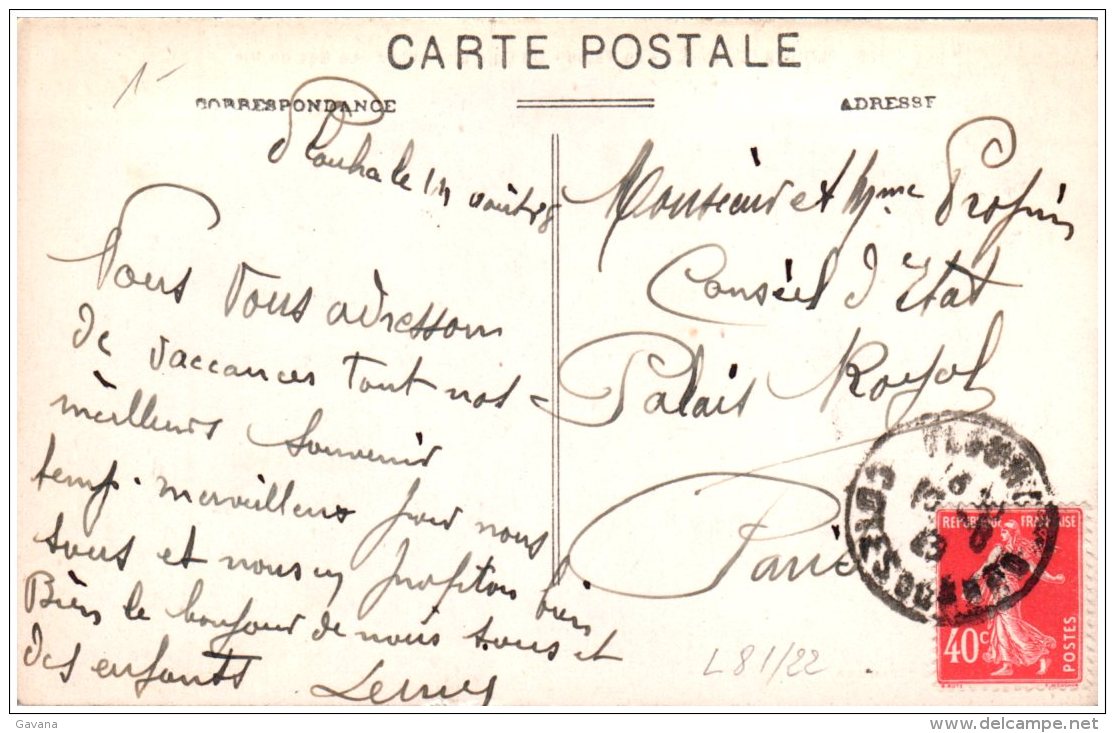 CARTE POSTALE
CORRESPONDANCE
ADRESSE
Plouha le 14 août
Nous Vous adressons
de vaccances Tout nos
meilleurs Souvenir
temp. merveilleux pour nous
tous et nous en profiton bien
Bien le bonjour de nous tous et
des enfants
Monsieur et Mme
Conseil d'Etat
Palais Royal
Paris
COTES DU NORD
REPUBLIQUE FRANÇAISE
40c
POSTES
L 81/22
Gavana
delcampe.net